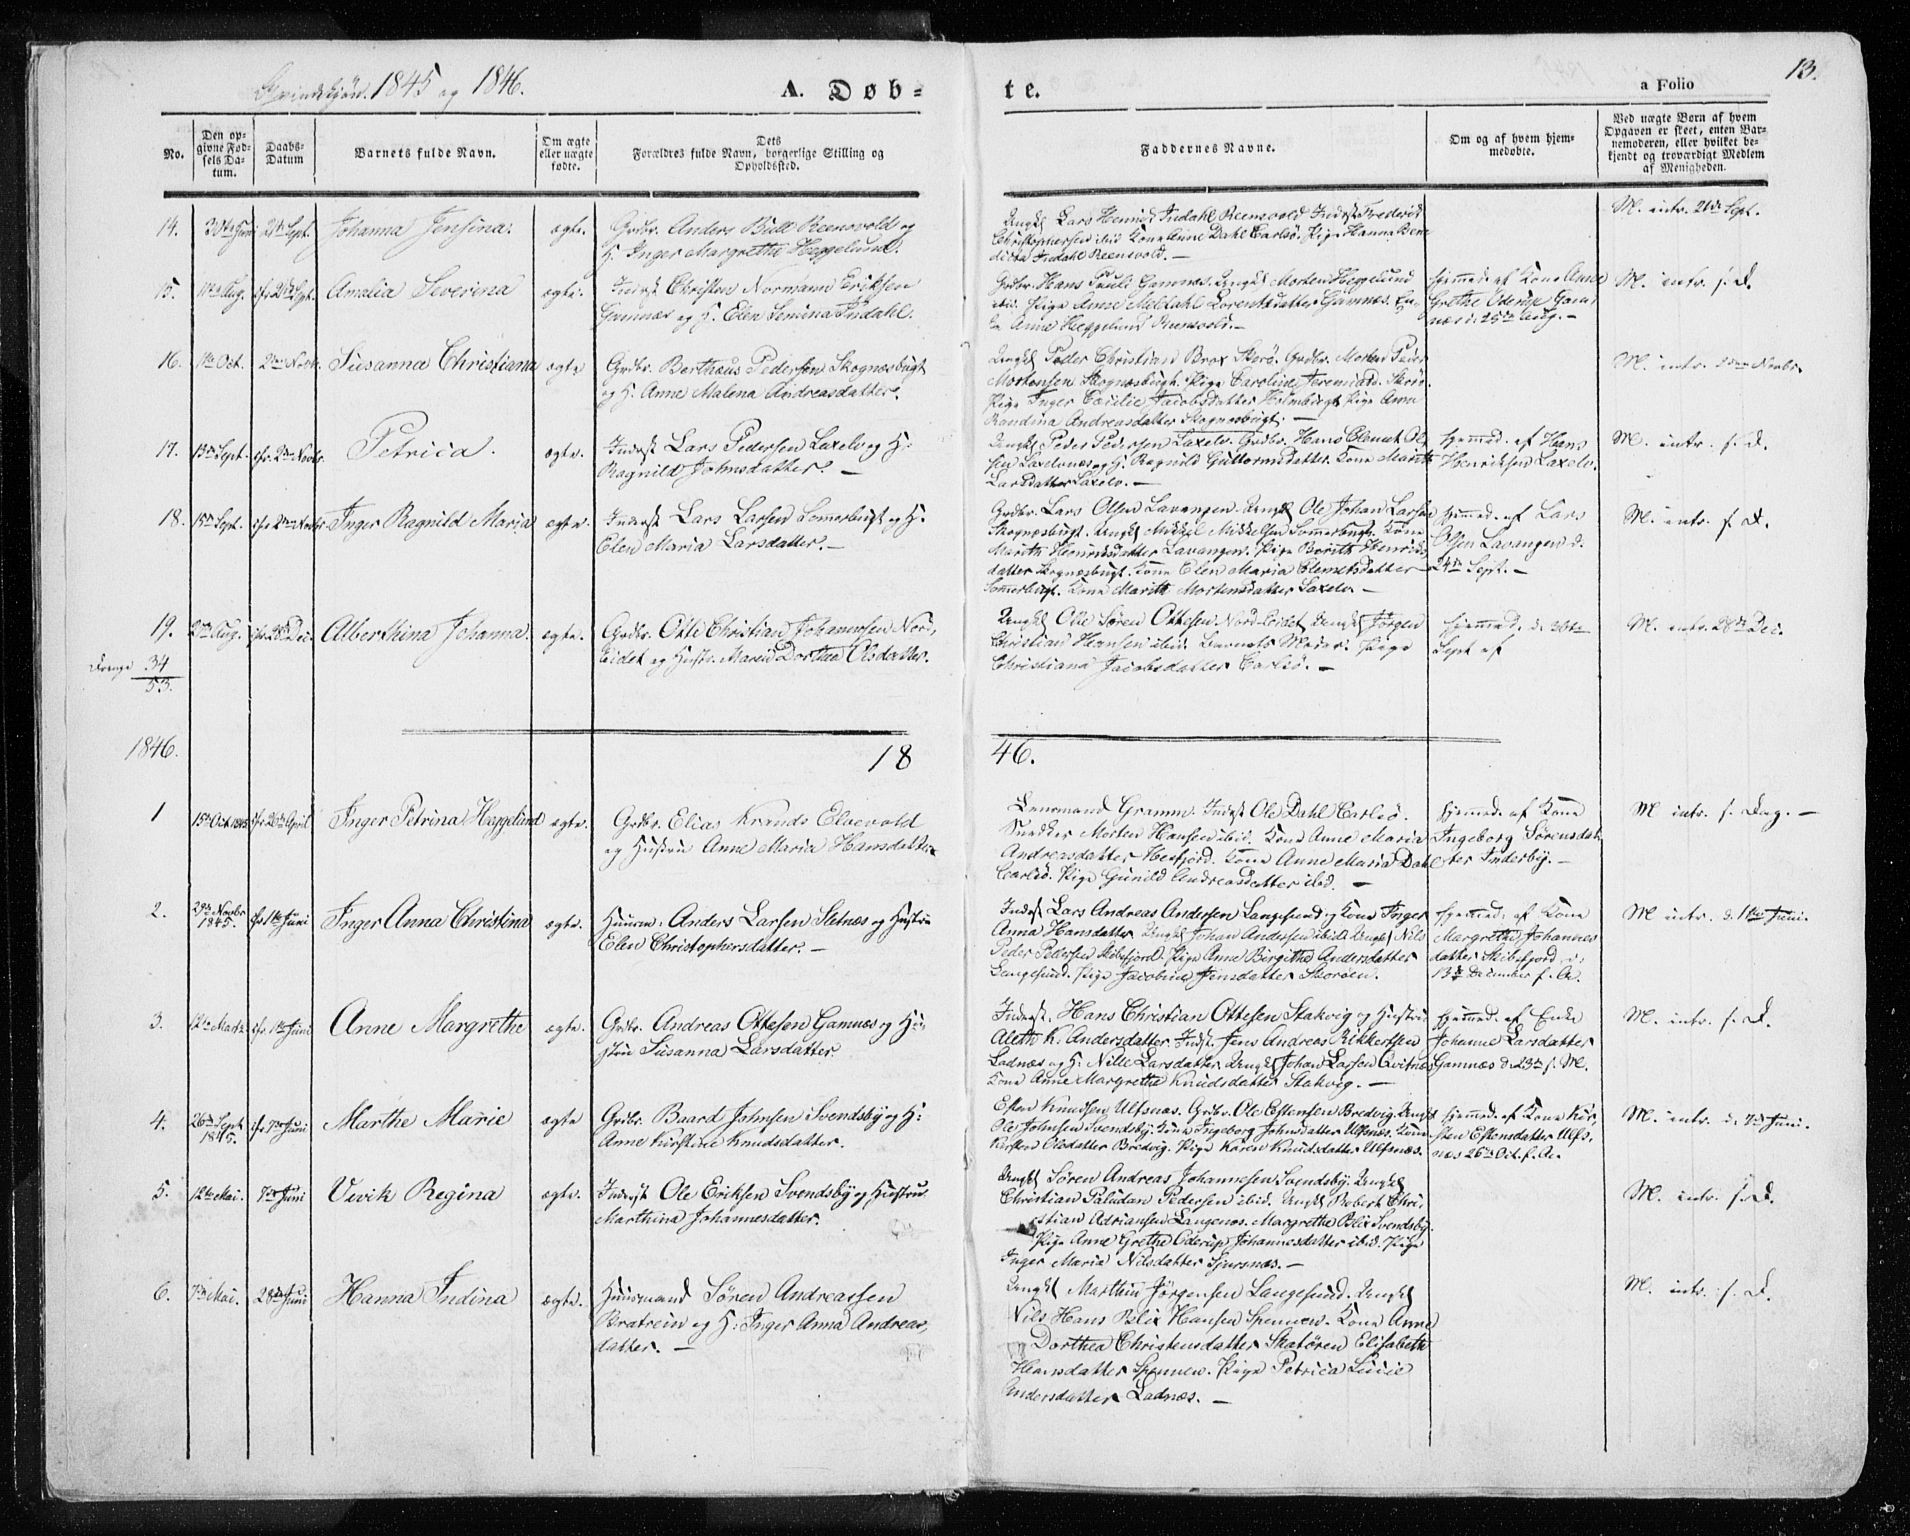 Qvindekjøn. 1845 og 1846.
A. Døb-
te.
a Folio
13.
No.
Den op-
givne Fød-
sels Da-
tum.
Daabs-
Datum
Barnets fulde Navn.
Om ægte
eller uægte
fødte.
Dets
Forældres fulde Navn, borgerlige Stilling og
Opholdssted.
Faddernes Navne.
Om og af hvem hjem-
medøbte.
Ved uægte Børn af hvem
Opgaven er skeet, enten Bar-
nemoderen, eller hvilket be-
kjendt og troværdigt Medlem
af Menigheden.
14. 30te Juni 21de Sept. Johanna Jensina. ægte.
Grdbr. Anders Bull Reensvold og
H. Inger Margrethe Heggelund.
Ungkl Lars Hennid Indahl Reensvold Inderst Frederik
Christophersen ibid Kone Anne Dahl Carlsö. Pige Hanna Bene
dicta Indahl Reensvold. —
M. intr. 21de Sept.
15. Aug. 21de Sept. Amalia Severina ægte.
Inderst Christen Normann Eriksen
Gamnæs og H. Elen Lenina Indahl.
Grdbr. Hans Pauli Gamnæs. Ungkl Morten Heggelund
ibid. Pige Anne Meldahl Lorentsdatter Gamnæs. En-
ke Anne Heggelund Reensvold. —
hjemmed. af Kone Anne
Grethe Oderup Gam-
næs d. 25de Aug. —
M. intr. s. D.
16. 1te Oct. 2den Novbr. Susanna Christiana ægte
Grdbr. Berthæus Pedersen Skognæsbugt
og H. Anne Malena Andreasdatter.
Ungkl Peder Christian Brox Skorö. Grdbr. Morten Peder
Mortensen Skognæsbugt. Pige Caroline Jeremiasd. Skorö.
Pige Inger Cæcilie Jacobsdatter Holmbugt Pige Anne
Randina Andreasdatter Skognæsbugt. —
M. intr. 2den Novbr.
17. 13de Sept. 2den Novbr. Petrica. ægte.
Inderst Lars Pedersen Laxelv og H:
Ragnild Johnsdatter. —
Ungkl Peder Pedersen Laxelv. Grdbr. Hans Clemet Ol-
sen Laxelvnæs og H. Ragnild Guttormsdatter. Kone Marith
Larsdatter Laxelv. —
hjemmed. af Hans
Henriksen Laxelv.
M. intr. s. D.
18. 15de Sept. 2den Novbr Inger Ragnild Maria ægte.
Inderst Lars Larsen Sommerbugt og H.
Elen Maria Larsdatter. —
Grdbr. Lars Olsen Lavangen. Ungkl Ole Johan Larsen
Skognæsbugt. Ungkl Mikkel Mikkelsen Sommerbugt. Kone
Marith Henriksdatter Lavangen. Pige Berith Henriks
datter Skognæsbugt. Kone Elen Maria Clemetsdatter
Sommerbugt. Kone Marith Mortensdatter Laxelv —
hjemmed. af Lars
Olsen Lavangen d.
24de Sept. —
M. intr. s. D.
19. Aug. 28de Dec. Alberthina Johanna. ægte.
Grdbr. Otte Christian Johannesen Nor-
Eidet og Hustr. Maren Dorthea Olsdatter.
Ungkl Ole Søren Ottesen Nord-Eidet Ungkl Jørgen
Christian Hansen ibid. Barnets Moder. Pige
Christiana Jacobsdatter Carlsö. —
hjemmed. d. 30te
Sept af
M. intr. 28de Dec.
Drenge 34
53.
1846.
18
46.
1 15de Oct. 1845 26de April Inger Petrina Heggelund ægte.
Grdbr. Elias Elvevold
og Hustru Anne Maria Hansdatter
Lensmand Gramm. Inderst Ole Dahl Carlsö.
Morten Hansen ibid. Kone Anne Maria
Andreasdatter Hesfjord. Kone Anne Maria Dahl
Carlsö. Pige Gunild Andreasdatter ibid. —
hjemmed. af Kone
Ingeborg Sørensdat-
ter Inderby. —
M intr. s. Dag. —
2. Novbr
1845. 1te Juni Inger Anna Christina ægte.
Huusm: Anders Larsen Sletnæs og Hustru
Elen Christophersdatter. —
Inderst Lars Andreas Andersen Langesund og Kone Inger
Anna Hansdatter. Ungkl Johan Andersen ibid. Ungkl Nils
Peder Pedersen Skibsfjord. Pige Anne Birgitha Andersdatter
Langesund. Pige Jacobine Jensdatter Skoröen.
hjemmed: af Kone
Margrethe Johannes
datter Skibsfjord d:
13de December f. A.
M intr. d. 1te Juni.
3. 12te Marts 1te Juni Anne Margrethe ægte.
Grdbr. Andreas Ottesen Gamnæs og Hu-
stru Susanna Larsdatter.
Inderst. Hans Christian Ottesen Stakvig og Hustru
Aleth K. Andersdatter. Inderst. Jens Andreas Rikkertsen
Ladnæs og H: Nille Larsdatter. Ungkl Johan Larsen Qvitnæs
Kone Anne Margrethe Knudsdatter Stakvig. —
hjemmed. af Enke
Johanne Larsdatter
Gamnæs d. 23de s. M.
M. intr. s. D.
4. 26de Sept
1845. 7de Juni Marthe Marie ægte
Grdbr. Baard Johnsen Svendsby og H:
Anne Kirstine Knudsdatter.
Esten Knudsen Ulfsnæs. Grdbr. Ole Estensen Bredvig. Ungkl
Ole Johnsen Svendsby. Kone Ingeborg Johnsdatter Ulfsnæs. Kone
Kirsten Olsdatter Bredvig. Pige Karen Knudsdatter Ulfsnæs.
hjemmed. af Kone Kir-
sten Estensdatter Ulfs-
næs 26de Oct. f. A.
M. intr. d. 7de Juni.
5. 12te Mai. 7de Juni Vivik Regina ægte.
Inderst Ole Eriksen Svendsby og Hustru
Marthina Johannesdatter.
Ungkl Søren Andreas Johannesen Svendsby. Ungkl
Christian Paludan Pedersen ibid. Ungkl Robert Chri-
stian Adriansen Langenes. Margrethe Blix Svendsby.
Pige Anne Grethe Oderup Johannesdatter ibid. Pige
Inger Maria Nilsdatter Sjursnæs. —
M. intr. s. D.
6. 7de Mai. 28de Juni Hanna Indina ægte.
Huusmand Søren Andreassen
Bratrein og H: Inger Anna Andreas-
datter. —
Ungkl Marthin Jørgensen Langesund. Ungkl
Nils Hans Blix Hansen Spennen. Kone Anne
Dorthea Christensdatter Skatören Elisabeth
Hansdatter Spennen. Pige Petrica Lucie
Andersdatter Ladnæs. —
M. intr. s. D.